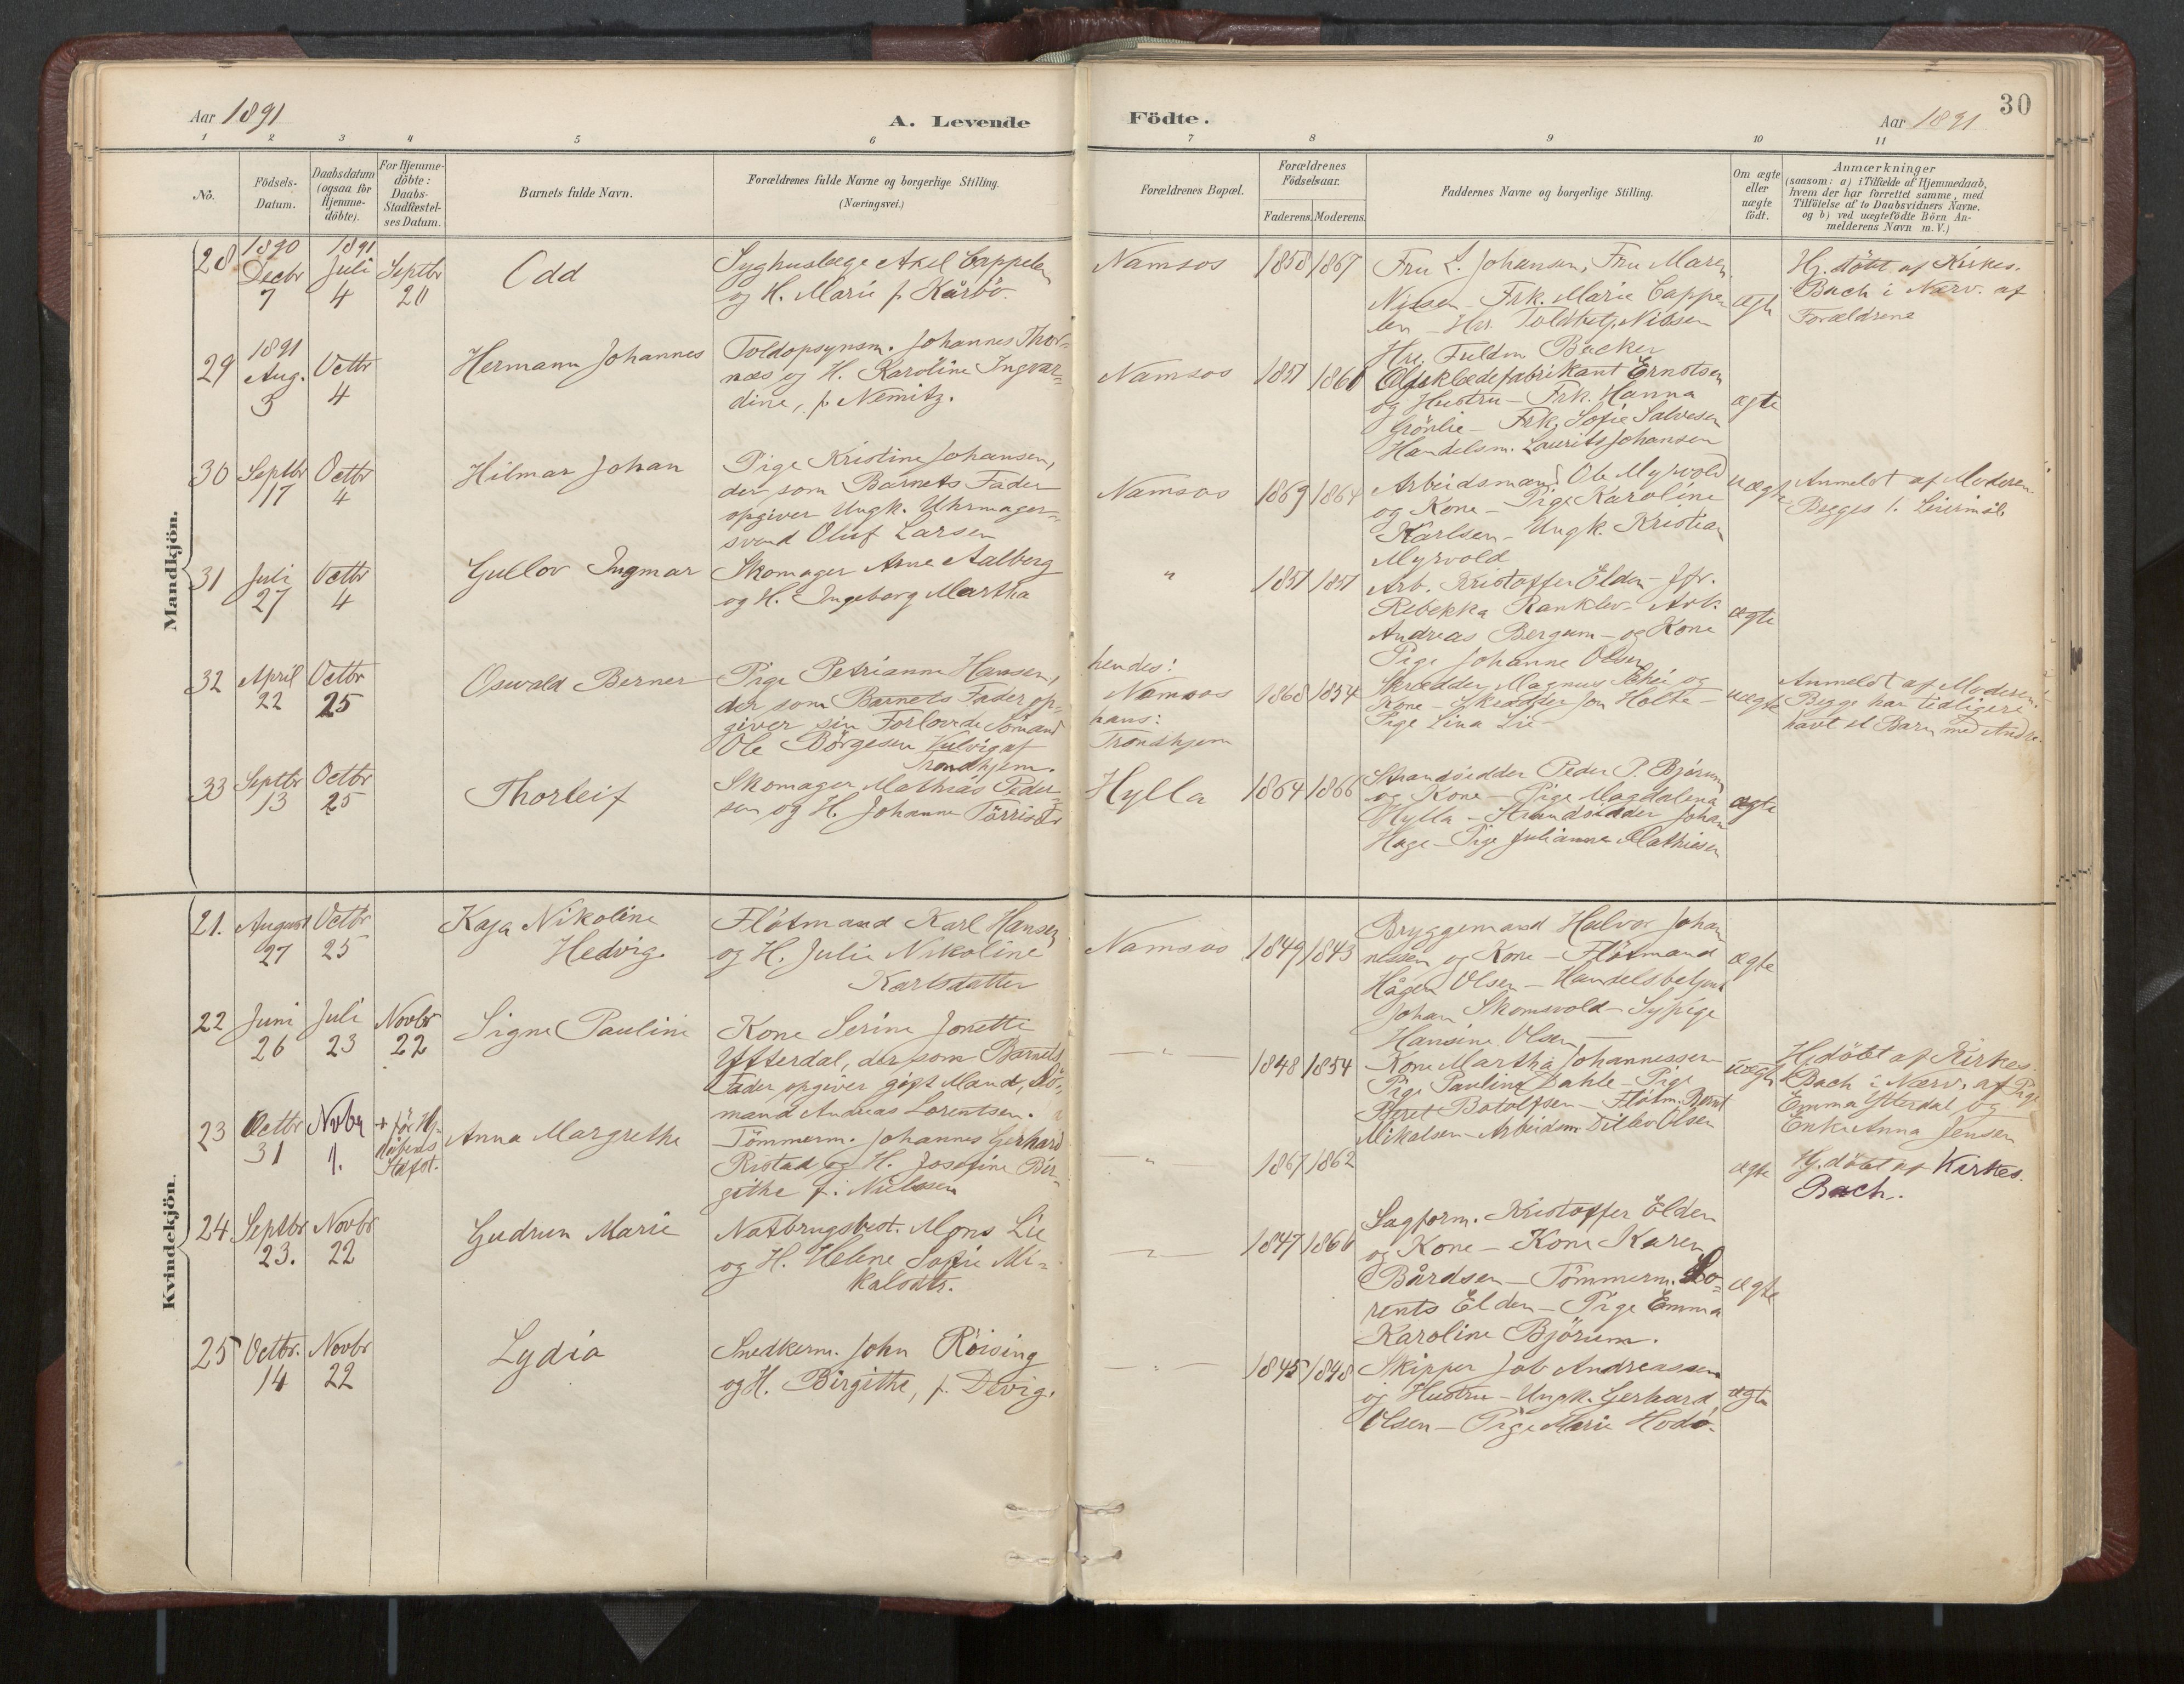 30
Aar 1891
A. Levende
Födte.
Aar 1891
1 2 3 4 5 6 7 8 9 10 11
No.
Födsels-
Datum.
Daabsdatum
(ogsaa for
Hjemme-
döbte).
For Hjemme-
döbte:
Daabs-
Stadfæstel-
ses Datum.
Barnets fulde Navn.
Forældrenes fulde Navne og borgerlige Stilling.
(Næringsvei.)
Forældrenes Bopæl.
Forældrenes
Födselsaar.
Faderens. Moderens.
Faddernes Navne og borgerlige Stilling.
Om ægte
eller
uægte
födt.
Anmærkninger
(saasom: a) i Tilfælde af Hjemmedaab,
hvem der har forrettet samme, med
Tilföielse af to Daabsvidners Navne.
og b) ved uægtefödte Börn An-
melderens Navn m. V.)
Mandkjön.
28
1890
Decbr
7
1891
Juli
4
Septbr
20
Odd
Syghuslæge Axel Cappelen
og H. Marie f. Kårbö.
Namsos
1858
1867
Fru L. Johansen, Fru Maren
Nissen - Frk. Marie Cappe-
len - Hrr. Toldbetj. Nissen
Hrr. Fuldm. Backer
ægte
Hj. döbt af Kirkes.
Bach i Nærv. af
Forældrene
29
1891
Aug.
3
Octbr
4
Hermann Johannes
Toldopsynsm. Johannes Thor-
næs og H. Karoline Ingvar-
dine, f. Nemitz.
Namsos
1857
1860
Oljeklædefabrikant Ernstsen
og Hustru - Frk. Hanna
Grönlie - Frk. Sofie Salvesen
Handelsm. Laurits Johansen
ægte
30
Septbr
17
Octbr
4
Hilmar Johan
Pige Kristine Johansen,
der som Barnets Fader
opgiver Ungk. Uhrmager-
svend Oluf Larsen
Namsos
1869
1864
Arbeidsmand Ole Myrvold
og Kone - Pige Karoline
Karlsen - Ungk. Kristian
Myrvold
uægte
Anmeldt af Moderen.
Begges 1. Leiermål.
31
Juli
27
Octbr
4
Gullov Ingmar
Skomager Arne Aalberg
og H. Ingeborg Martha
"
1857
1857
Arb. Kristoffer Elden - Jfr.
Rebekka Ranklev - Arb.
Andreas Bergum - og Kone
Pige Johanne Olsen
ægte
32
April
22
Octbr
25
Oswald Berner
Pige Petrianna Hansen,
der som Barnets Fader op-
giver sin Forlovede Sömand
Ole Börgesen Kulvig af
Trondhjem.
hendes:
Namsos
hans:
Trondhjem
1868
1854
Skrædder Magnus Schei og
Kone - Skrædder Jon Holte -
Pige Lina Lie
uægte
Anmeldt af Moderen.
Begge har tidligere
havt et Barn med Andre.
33
Septbr
13
Octbr
25
Thorleif
Skomager Mathias Peder-
sen og H. Johanna Törrisdtr
Hylla
1864
1866
Strandsidder Peder P. Björum
og Kone - Pige Magdalena
Hylla - Strandsidder Johan
Hage - Pige Julianna Mathiesen
ægte
Kvindekjön.
21.
August
27
Octbr
25
Kaja Nikoline
Hedvig.
Flötmand Karl Hansen
og H. Julie Nikoline
Karlsdatter
Namsos
1849
1843
Bryggemand Halvor Johan-
nessen og Kone - Flötmand
Hågen Olsen - Handelsbetjent
Johan Skomsvold - Sypige
Hansine Olsen -
ægte
22
Juni
26
Juli
23
Novbr
22
Signe Pauline
Kone Serine Jonette
Ytterdal, der som Barnets
Fader opgiver gift Mand, Sö-
mand Andreas Lorentsen.
— " —
1848
1854
Kone Martha Johannessen
Pige Pauline Dahle - Pige
Beret Botolfsen - Flötm. Bernt
Mikalsen - Arbeidsm. Ditlev Olsen
uægte
Hj. döbt af Kirkes.
Bach i Nærv. af Pige
Emma Ytterdal og
Enke Anna Jensen
23
Octbr
31
Novbr
1.
+ för Hj-
dåbens
Stadfst.
Anna Margrethe
Tömmerm. Johannes Gerhard
Ristad og H. Josefine Bir-
githe f. Nielssen
— " —
1867
1862
ægte
Hj. döbt af Kirkes.
Bach.
24
Septbr
23.
Novbr
22
Gudrun Marie
Notbrugsbest. Mons Lie
og H. Helene Sofie Mi-
kalsdtr.
— " —
1847
1866
Sagform. Kristoffer Elden
og Kone - Kone Karen
Bårdsen - Tömmerm. Lo-
rents Elden - Pige Emma
Karoline Björum.
ægte
25
Octbr.
14
Novbr
22
Lydia
Snedkerm. John Röising
og H. Birgithe, f. Devig.
— " —
1845
1848
Skipper Job Andreassen
og Hustru - Ungk. Gerhard
Olsen - Pige Marie Hodö.
ægte